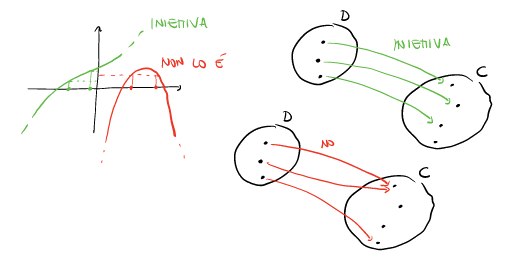 INIETTIVA
NON LO È
D
INIETTIVA
C
D
NO
C